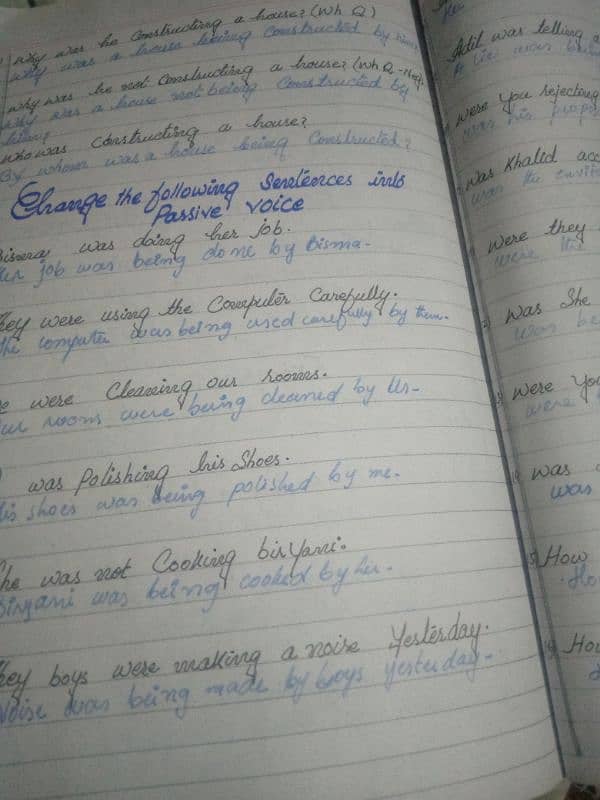 Why was he Constructing a house? (Wh Q)
Why was a house being Constructed by him?
Why was he not Constructing a house? (Wh.Q-Neg)
Why was a house not being Constructed by
him?
Who was Constructing a house?
By whom was a house being Constructed?
Change the following Sentences into
Passive Voice
Bisma was doing her job.
Her job was being done by Bisma.
They were using the Computer Carefully.
The computer was being used carefully by them.
we were Cleaning our rooms.
Our rooms were being cleaned by Us.
was Polishing his Shoes.
His shoes was being polished by me.
She was not Cooking biryani.
Biryani was being cooked by her.
They boys were making a noise Yesterday.
Noise was being made by boys yesterday.
Adil was telling a
A lie was
were You rejecting
was his
was Khalid
was the
were they
were the
was She
was be
were You
were
was
was
How
How